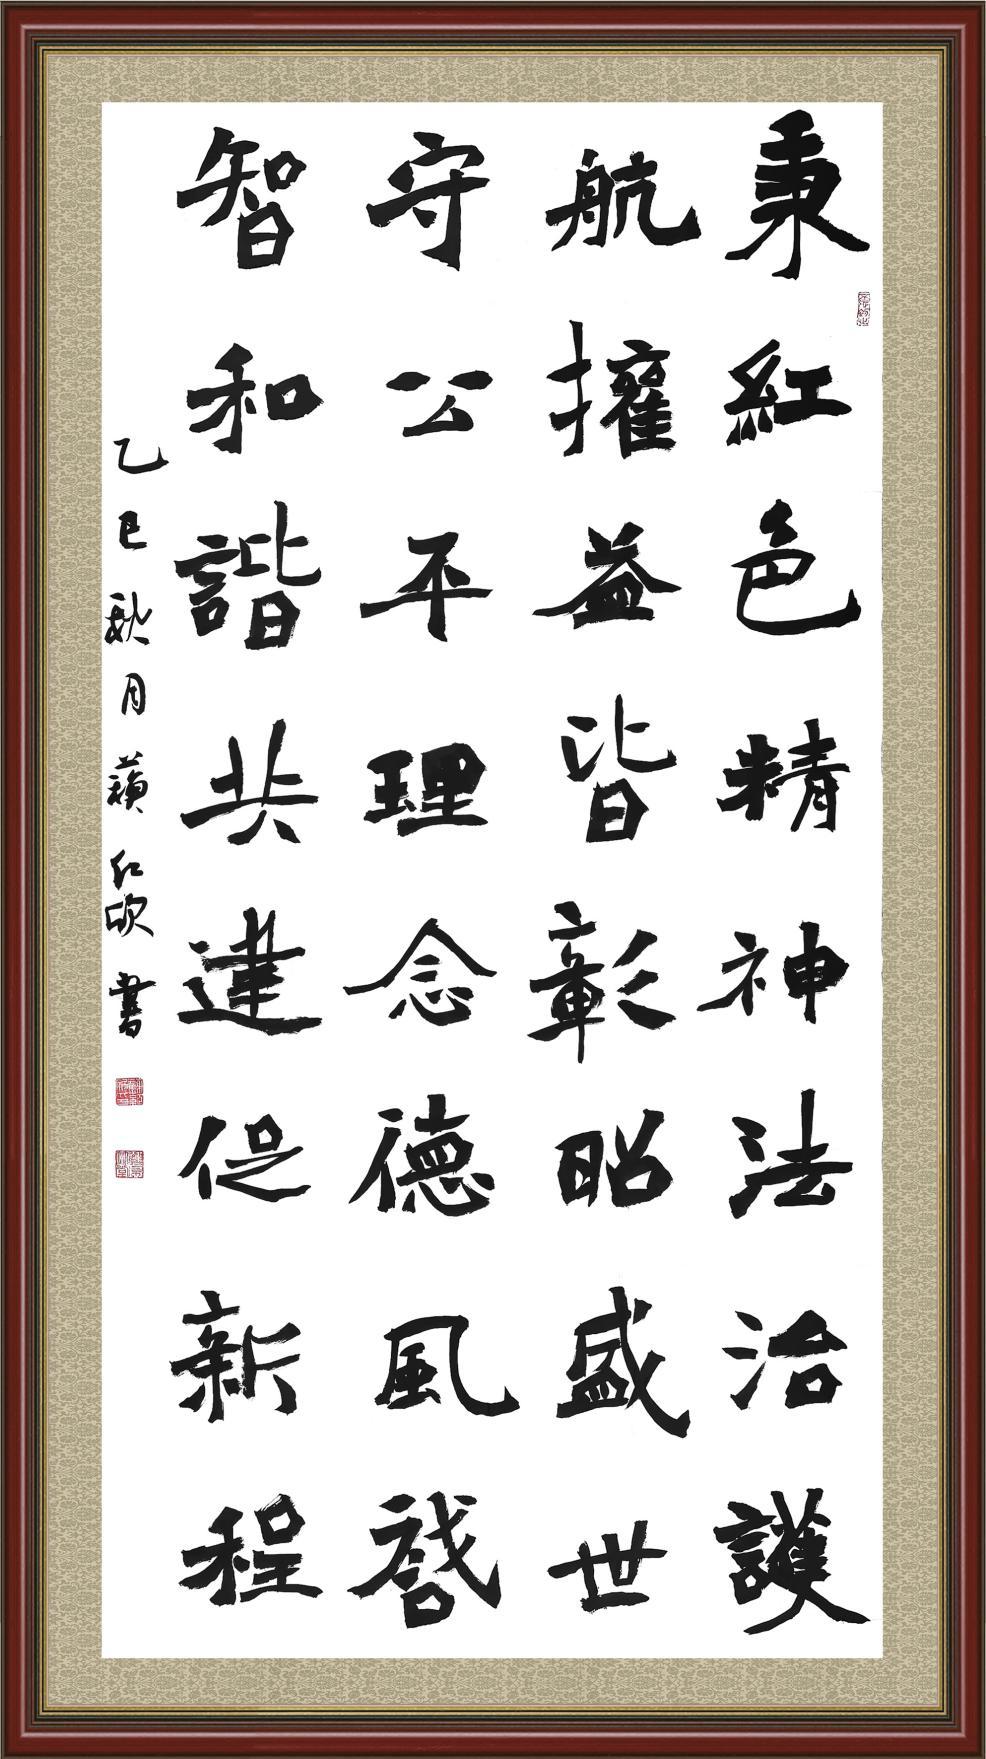 秉紅色精神法治護
航權益皆彰昭盛世
守公平理念德風啓
智和諧共建促新程
乙巳秋月書